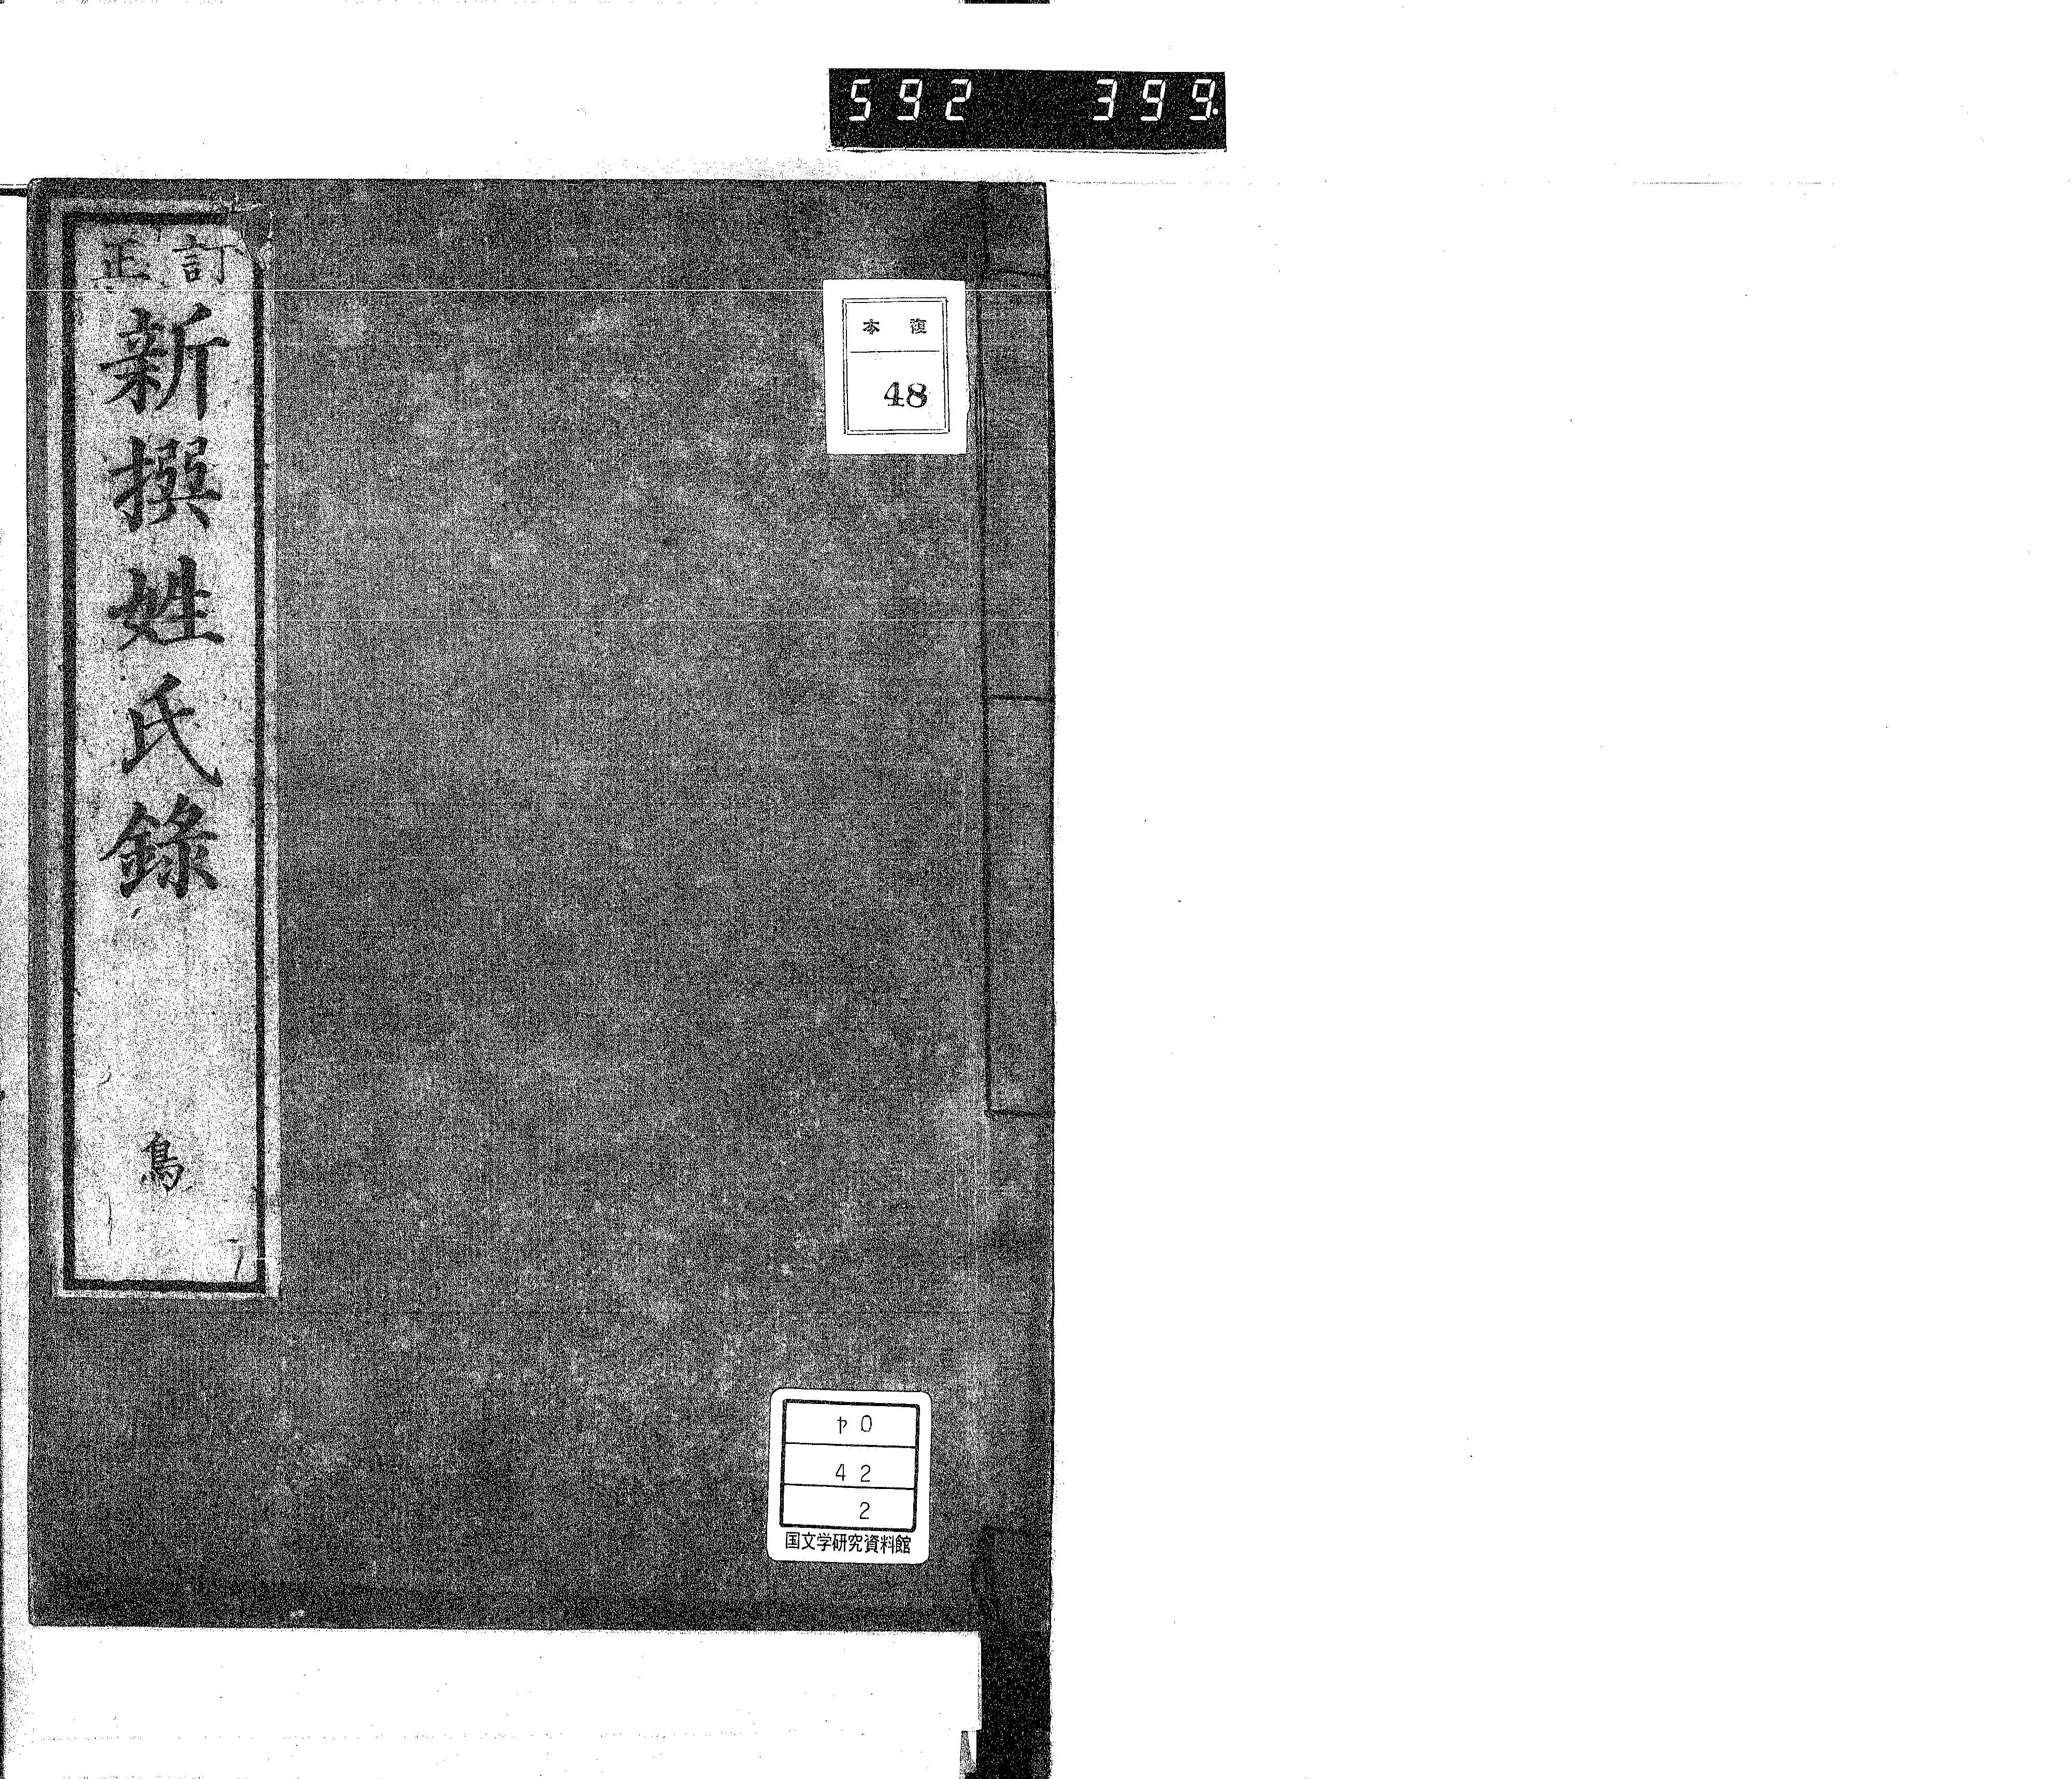 592 399.
訂正
新撰姓氏錄
鳥
複本
48
ヤ0
42
2
国文学研究資料館